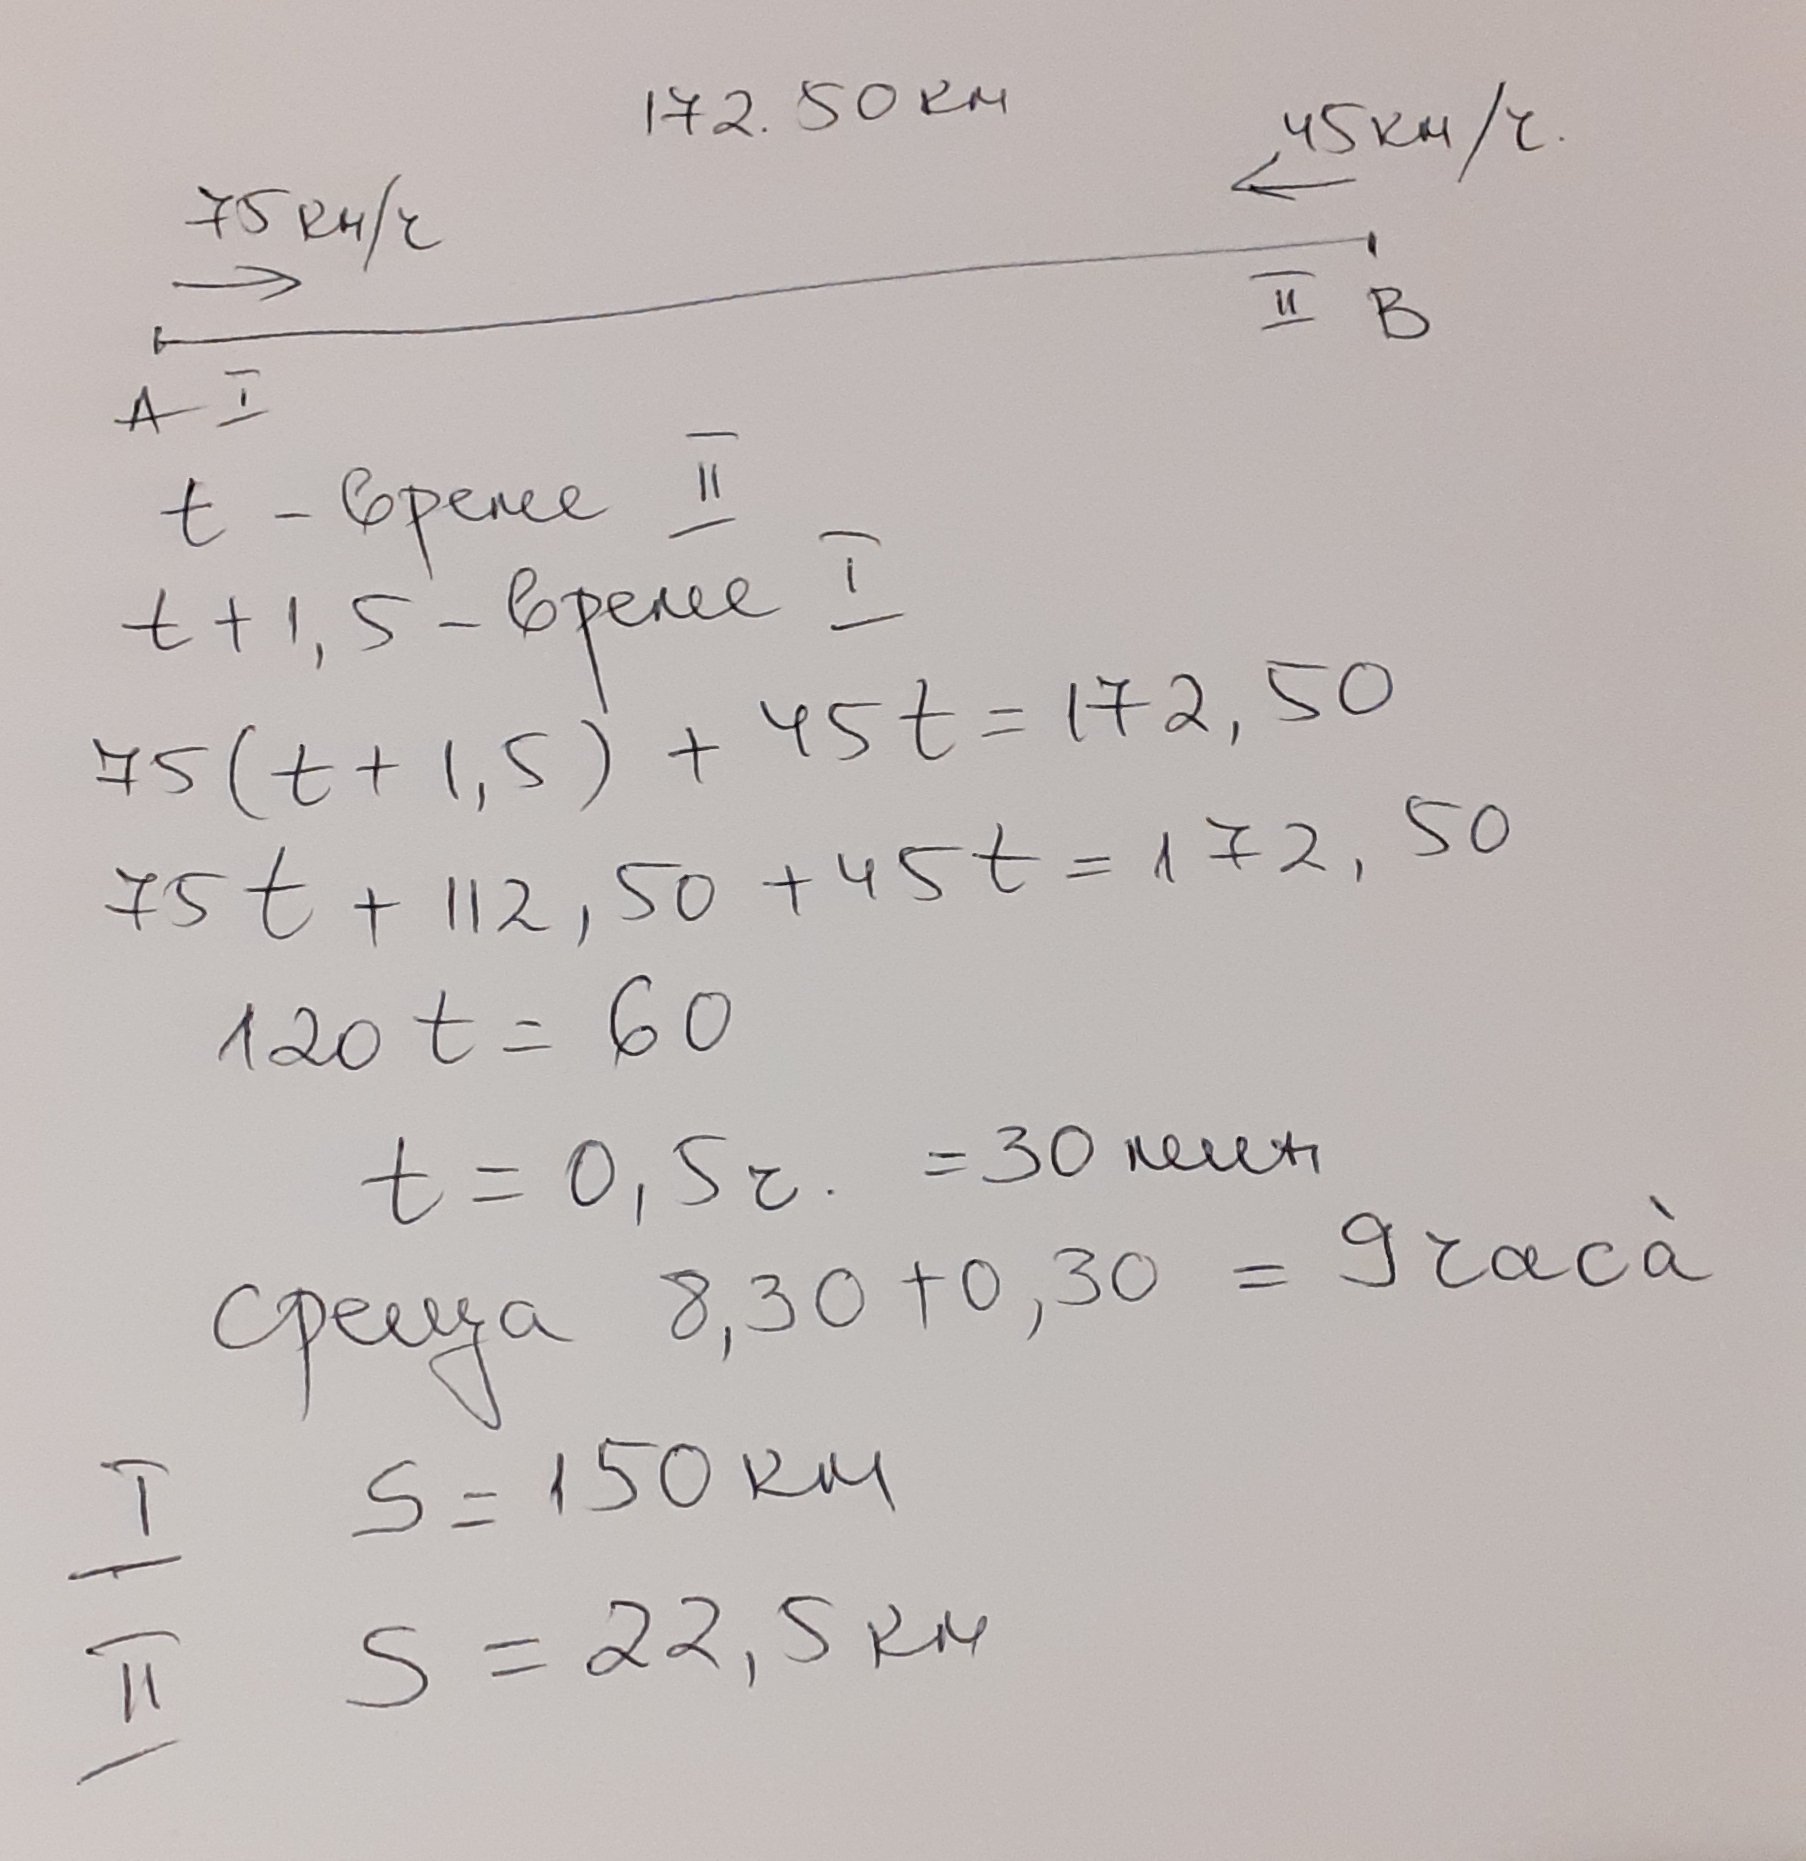 172.50 км
75 км/ч
45 км/ч.
A I
II B
t - време II
t + 1,5 - време I
75(t + 1,5) + 45t = 172,50
75t + 112,50 + 45t = 172,50
120t = 60
t = 0,5ч. = 30 мин
среща 8,30 + 0,30 = 9 часà
I S = 150 км
II S = 22,5 км